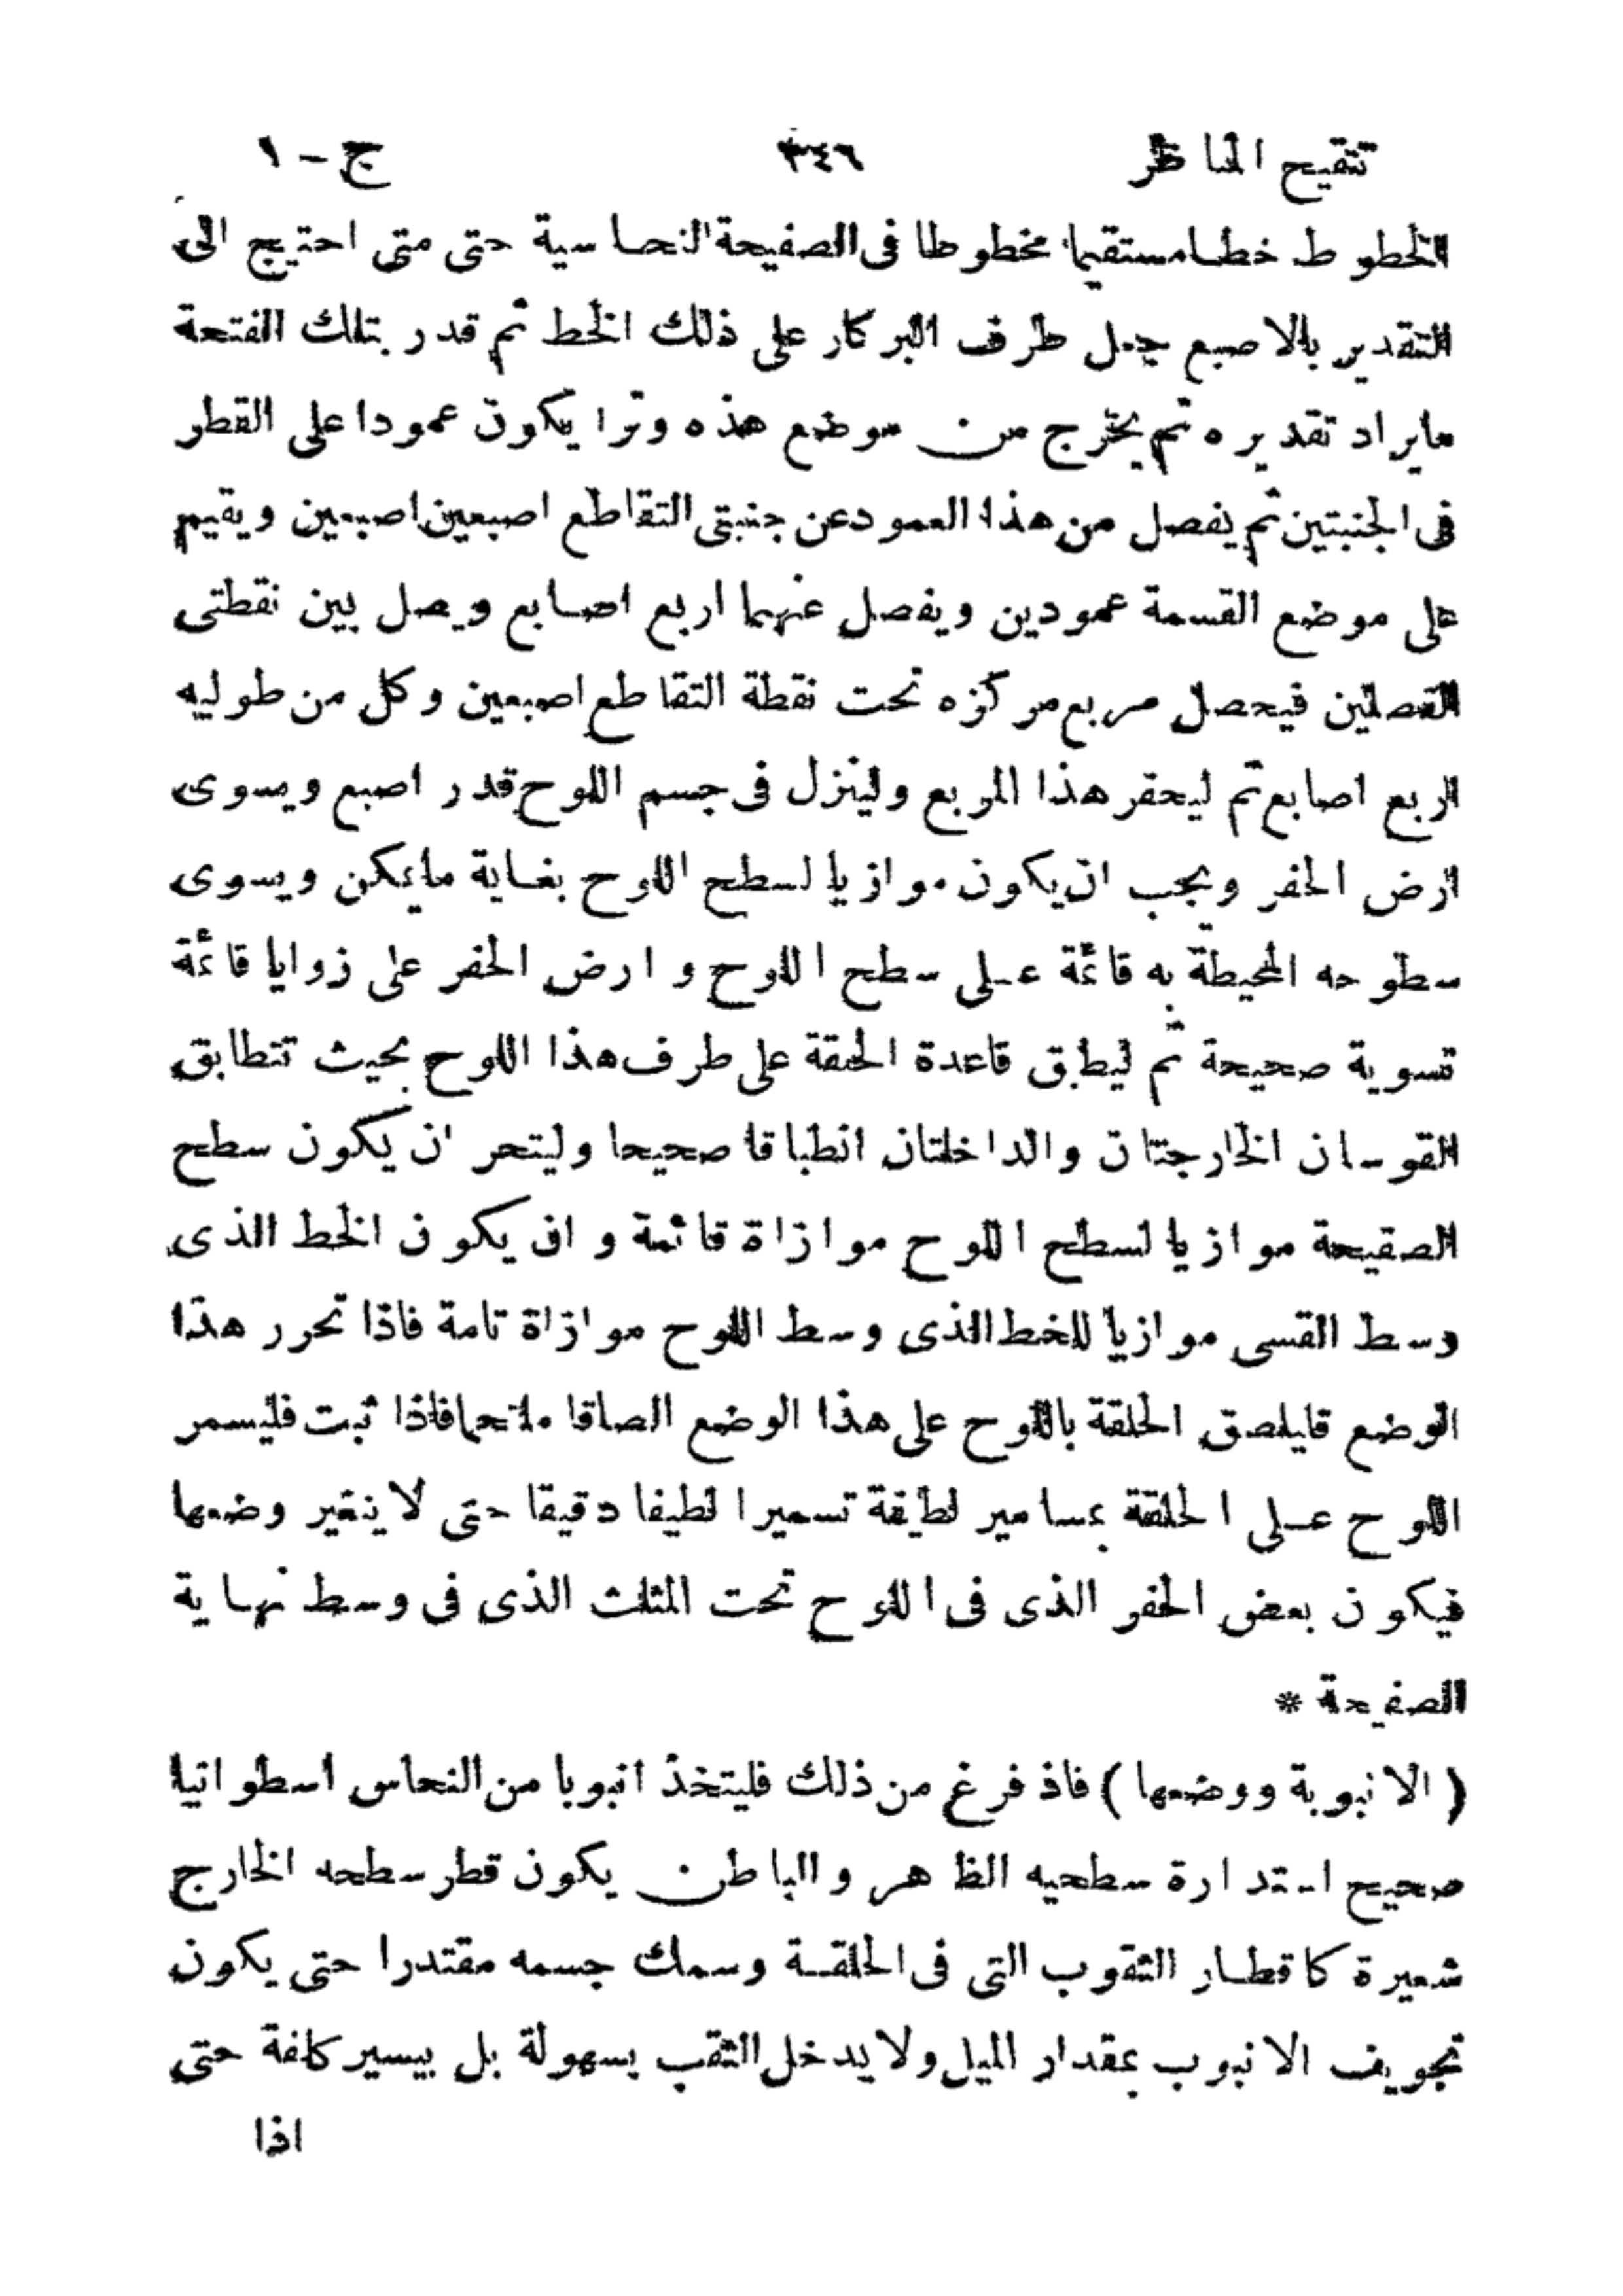 تنقيح المناظر ٣٤٦ ج - ١
الخطوط خطا مستقيما مخطوطا فى الصفيحة النحاسية حتى متى احتيج الى
التقدير بالاصبع جعل طرف البركار على ذلك الخط ثم قدر بتلك الفتحة
ما يراد تقديره ثم يخرج من موضع هذه وترا يكون عمودا على القطر
فى الجنبتين ثم يفصل من هذا العمود عن جنبتى التقاطع اصبعين اصبعين ويقيم
على موضع القسمة عمودين ويفصل عنهما اربع اصابع ويصل بين نقطتى
الفصلين فيحصل مربع مركزه تحت نقطة التقاطع اصبعين وكل من طوليه
اربع اصابع ثم ليحفر هذا المربع ولينزل فى جسم اللوح قدر اصبع ويسوى
ارض الحفر ويجب ان يكون موازيا لسطح اللوح بغاية ما يمكن ويسوى
سطوحه المحيطة به قائمة على سطح اللوح و ارض الحفر على زوايا قائمة
تسوية صحيحة ثم ليطبق قاعدة الحلقة على طرف هذا اللوح بحيث تتطابق
القوسان الخارجتان والداخلتان انطباقا صحيحا وليتحر ان يكون سطح
الصفيحة موازيا لسطح اللوح موازاة قائمة و ان يكون الخط الذى
وسط القسى موازيا للخط الذى وسط اللوح موازاة تامة فاذا تحرر هذا
الوضع فليلصق الحلقة باللوح على هذا الوضع الصاقا ملتحما فاذا ثبت فليسمر
اللوح على الحلقة بمسامير لطيفة تسميرا لطيفا دقيقا حتى لا يتغير وضعها
فيكون بعض الحفر الذى فى اللوح تحت المثلث الذى فى وسط نهاية
الصفيحة *
( الانبوبة ووضعها ) فاذ فرغ من ذلك فليتخذ انبوبا من النحاس اسطوانيا
صحيح استدارة سطحيه الظاهر والباطن يكون قطر سطحه الخارج
شعيرة كاقطار الثقوب التى فى الحلقة وسمك جسمه مقتدرا حتى يكون
تجويف الانبوب بمقدار الميل ولا يدخل الثقب بسهولة بل بيسير كلفة حتى
اذا